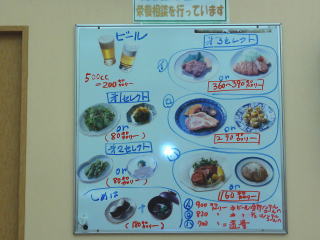 栄養相談を行っています
ビール
500cc
=200カロリー
オ1セレクト
or
(80カロリー)
オ2セレクト
or
(80カロリー)
しめは
or
(180カロリー)
オ3セレクト
①
or
360~390カロリー
②
or
290カロリー
③
or
160カロリー
① 900カロリー
② 830
③ 700